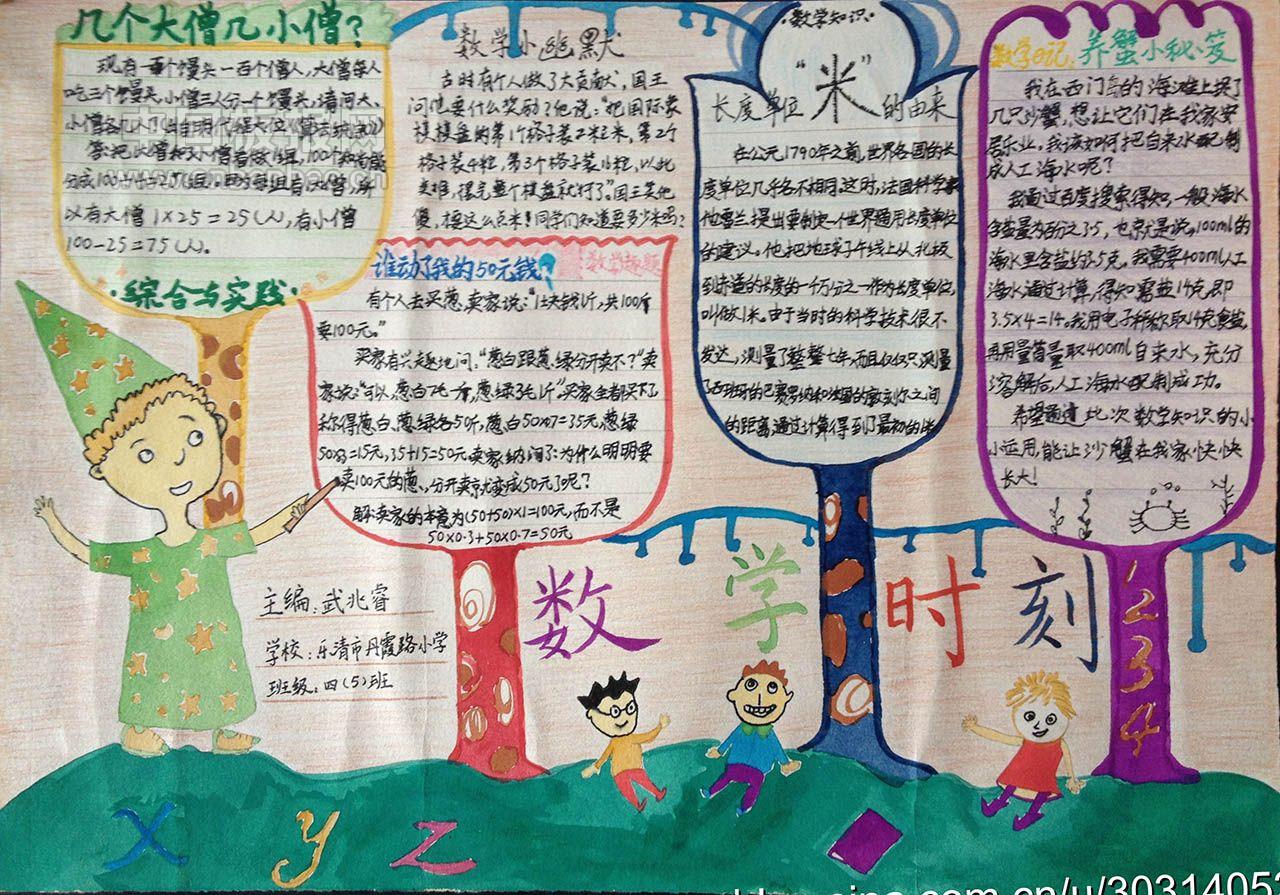 几个大僧几小僧？
现有一百个馒头一百个僧人，大僧每人
吃三个馒头，小僧三人分一个馒头，请问大、
小僧各几人？（出自明代程大位《算法统宗》）
答：把大僧和3小僧看做1组，100个和尚能
分成100÷4=25组。因为每组有1大僧，所
以有大僧1×25=25（人），有小僧
100-25=75（人）。
·综合与实践·
数学小幽默
古时有个人做了大贡献，国王
问他要什么奖励？他说：“把国际象
棋棋盘的第1个格子装2粒米，第2个
格子装4粒，第3个格子装8粒，以此
类推，摆完整个棋盘就行了”国王笑他
傻，才要这么点米！同学们知道要多少米吗？
谁动了我的50元钱？
数学趣题
有个人去买葱，卖家说：“1块钱1斤，共100斤
要100元。”
买家有兴趣地问：“葱白跟葱绿分开卖不？”卖
家说：“可以，葱白7毛一斤，葱绿3毛1斤”买家全都买下了，
称得葱白、葱绿各50斤，葱白50×7=35元，葱绿
50×3=15元，35+15=50元卖家纳闷了：为什么明明要
卖100元的葱，分开卖就变成50元了呢？
解：卖家的本意为（50+50）×1=100元，而不是
50×0.3+50×0.7=50元
·数学知识·
“米”
长度单位 的由来
在公元1790年之前，世界各国的长
度单位几乎各不相同，这时，法国科学家
他雷兰提出要制定一个世界通用长度单位
的建议。他把地球子午线上从北极
到赤道的长度的一千万分之一作为长度单位，
叫做1米。由于当时的科学技术很不
发达，测量了整整七年，而且仅仅只测量
了西班牙的巴赛罗纳和法国的敦刻尔之间
的距离，通过计算得到了最初的1米
数学日记：养蟹小秘笈
我在西门岛的海滩上捉了
几只沙蟹，想让它们在我家安
居乐业。我该如何把自来水配制
成人工海水呢？
我通过百度搜索得知，一般海水
含盐量为百分之3.5，也就是说，100ml的
海水里含盐约3.5克。我需要400ml人工
海水通过计算，得知需盐14克，即
3.5×4=14。我用电子秤称取14克食盐，
再用量筒量取400ml自来水，充分
溶解后，人工海水配制成功。
希望通过此次数学知识的小
小运用，能让沙蟹在我家快快
长大！
数学时刻
主编：武兆睿
学校：乐清市丹霞路小学
班级：四（5）班
1
2
3
4
x y z